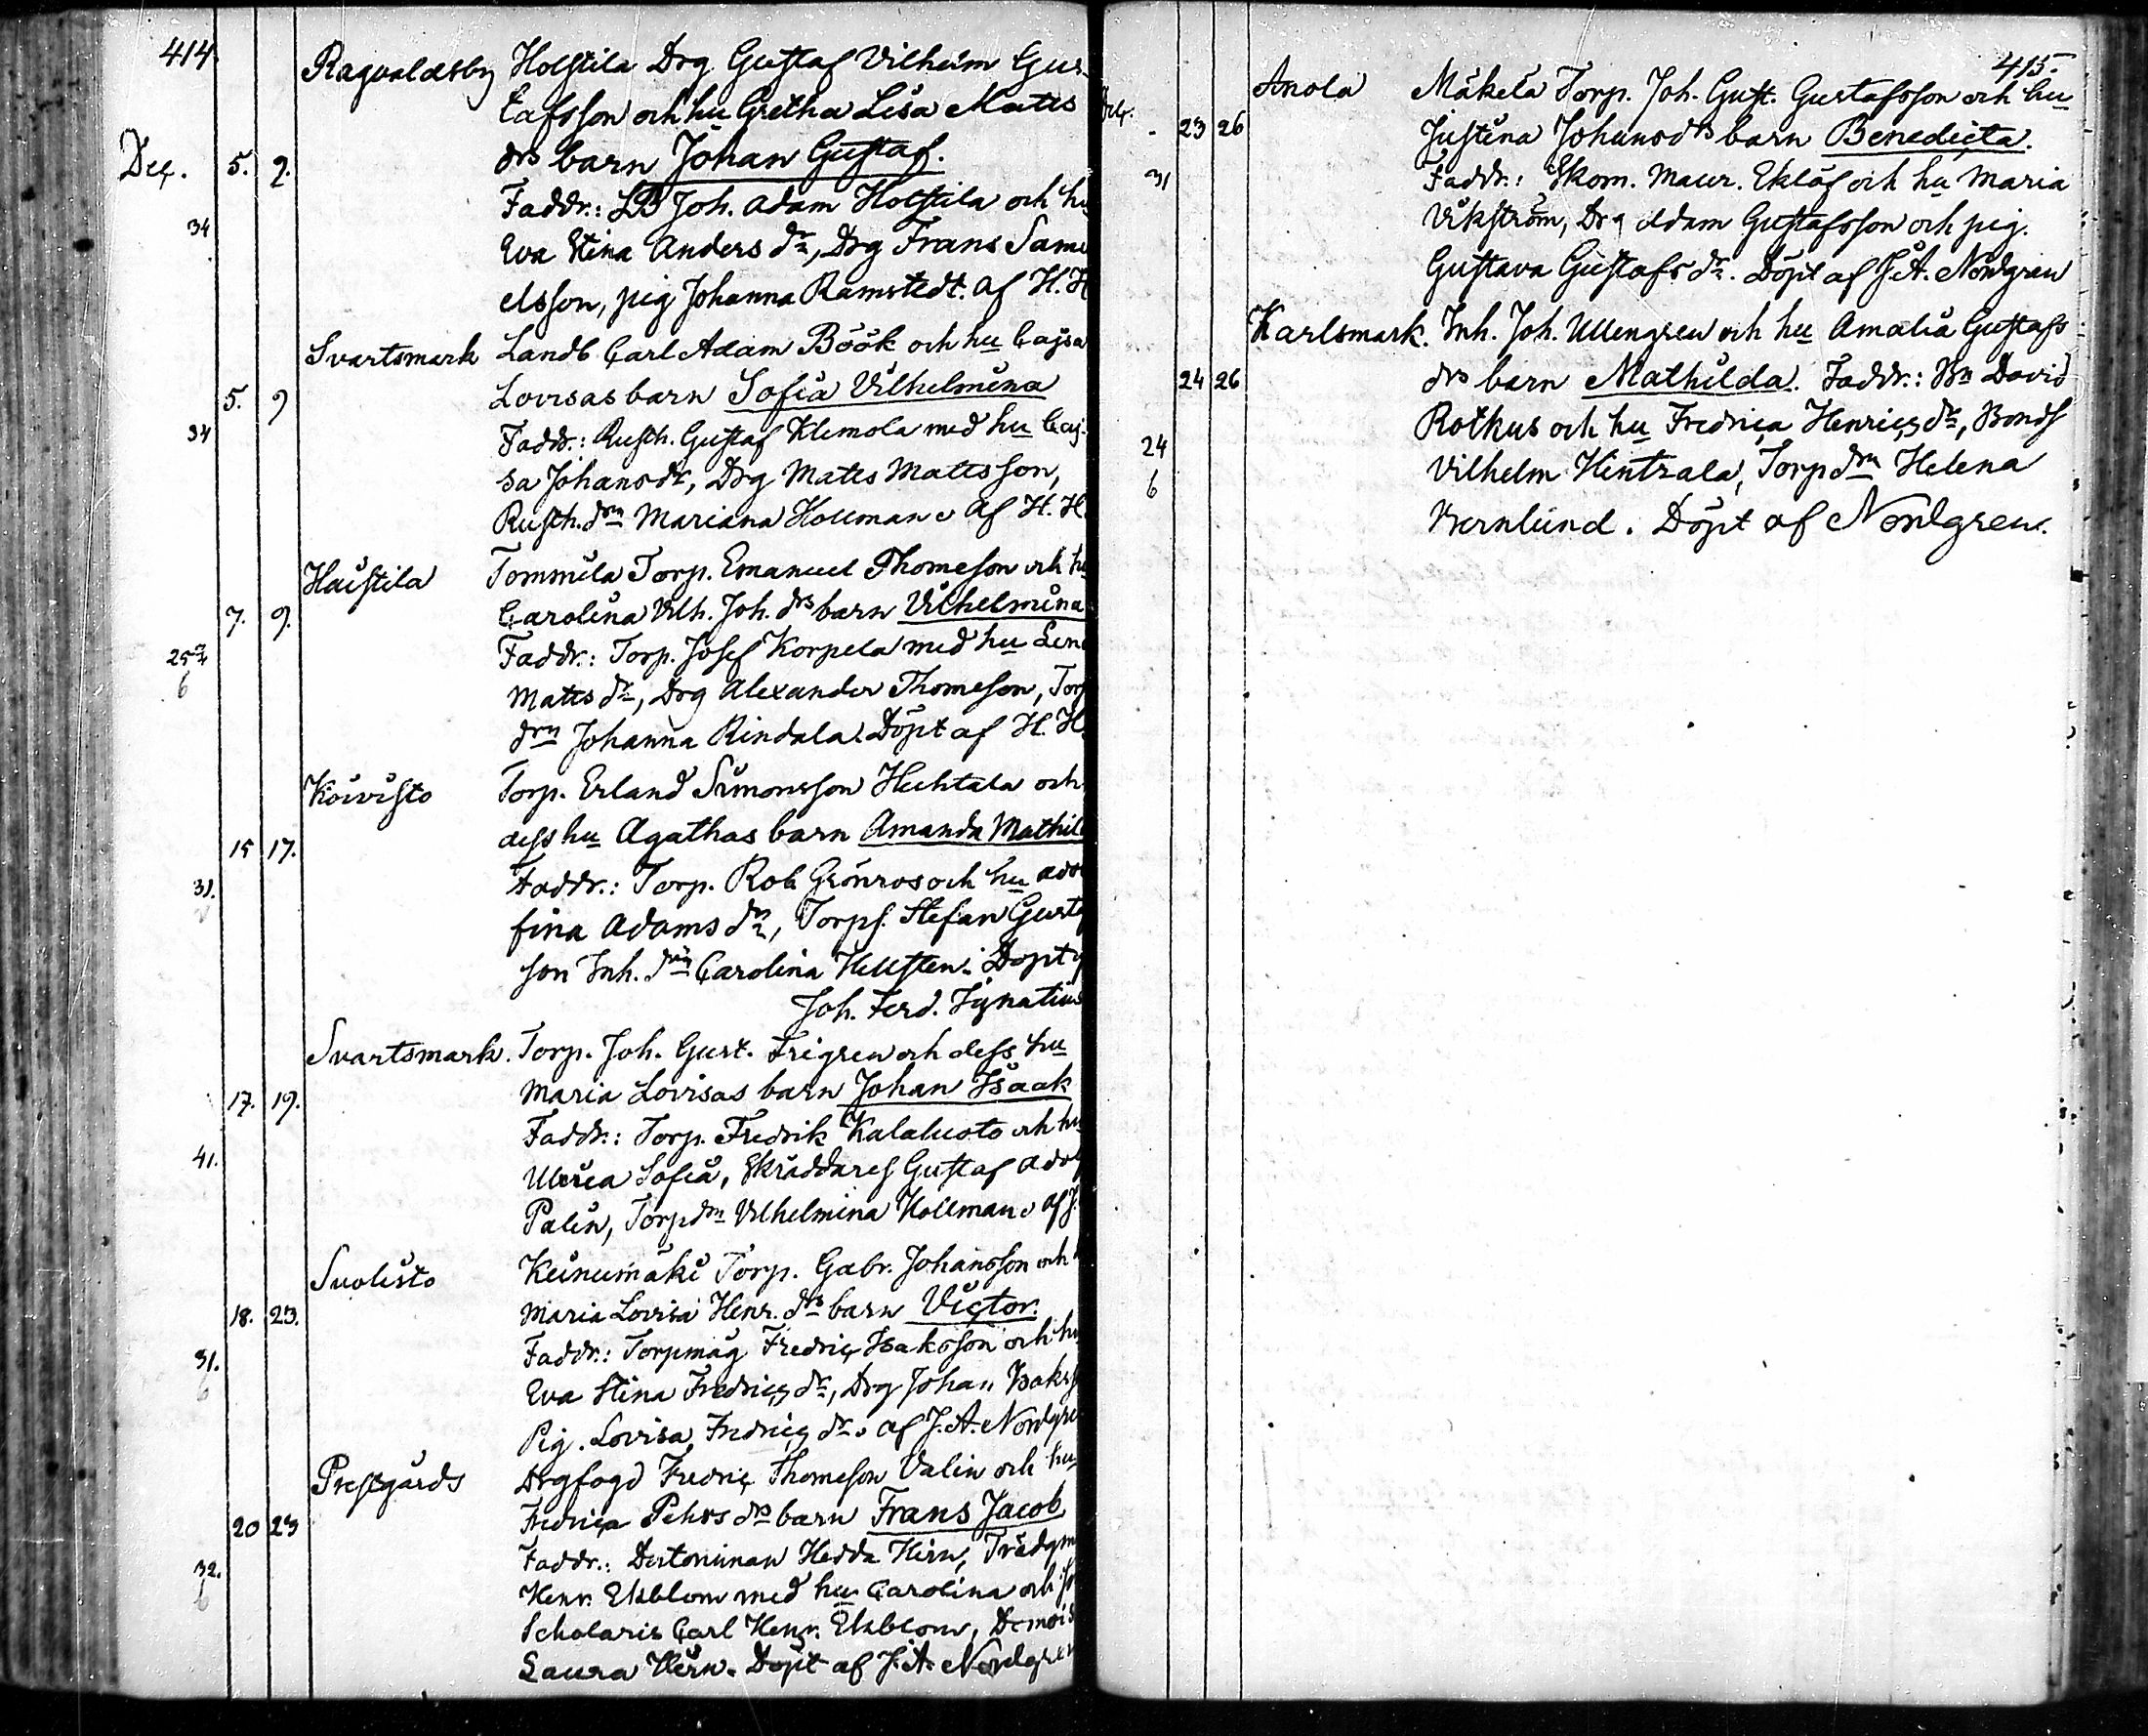 414.
Ragvaldsby Holstila Drg Gustaf Vilhelm Gus-
tafsson och hu Gretha Lisa Matts
Dec. 5. 9. drs barn Johan Gustaf.
Faddr.: LB Joh. Adam Holstila och hu
34 Eva Stina Anders dr, Drg Frans Samu
elsson, pig Johanna Ramstedt. af H. H
Svartsmark Landb. Carl Adam Böök och hu Cajsa
5. 9 Lovisas barn Sofia Vilhelmina
34 Faddr.: Rusth. Gustaf Klemola med hu Caj-
sa Johansdr, Drg Matts Mattsson,
Rusth. drn Mariana Hollman. af H. H.
Haistila Tommila Torp. Emanuel Thomeson och hu
7. 9. Carolina Vilh. Joh. drs barn Vilhelmina
25 Faddr.: Torp. Josef Korpela med hu Lena
6 Matts dr, Drg Alexander Thomeson, Torp
drn Johanna Rindala. Döpt af H. H.
Koivisto Torp. Erland Simonsson Huhtala och
15 17. dess hu Agathas barn Amanda Mathil
31. Faddr.: Torp. Rob. Grönros och hu Ado
fina Adams dr, Torps. Stefan Gusta
son Inh. drn Carolina Hellsten. Döpt
Joh. Ferd. Ignatius
Svartsmark. Torp. Joh. Gust. Frigren och dess hu
17. 19. Maria Lovisas barn Johan Isaak
Faddr.: Torp. Fredrik Kalaluoto och hu
41. Ulrica Sofia, Skräddares Gustaf Adol
Palin, Torpdrn Vilhelmina Hollman. af J.
Suolisto Keinumäki Torp. Gabr. Johansson och
18. 23. Maria Lovisa Henr. drs barn Victor.
Faddr.: Torpmåg Fredric Isaksson och hu
31. Eva Stina Fredrics dr, Drg Johan Isakss
6 Pig. Lovisa Fredrics dr. af J. A. Nordgre
Prestgårds Drgfogd Fredric Thomeson Valin och hu
20 23 Fredrica Pehrs drs barn Frans Jacob
Faddr.: Doktorinnan Hedda Hirn, Trädgm
32. Henr. Ekblom med hu Carolina och
6 Scholaris Carl Henr. Ekblom, Demois
Laura Hirn. Döpt af J. A. Nordgren
415.
Anola Mäkelä Torp. Joh. Gust. Gustafsson och hu
Dec. 23 26 Justina Johansdrs barn Benedicta.
31 Faddr.: Skom. Maur. Eklöf och hu Maria
Vikström, Drg Adam Gustafsson och pig.
Gustava Gustafs dr. Döpt af J. A. Nordgren
Karlsmark. Inh. Joh. Ullengren och hu Amalia Gustafs
24 26 drs barn Mathilda. Faddr.: Bn David
Rotkus och hu Fredrica Henrics dr, Bonds
24 Vilhelm Hintzala, Torpdrn Helena
6 Bernlund. Döpt af Nordgren.